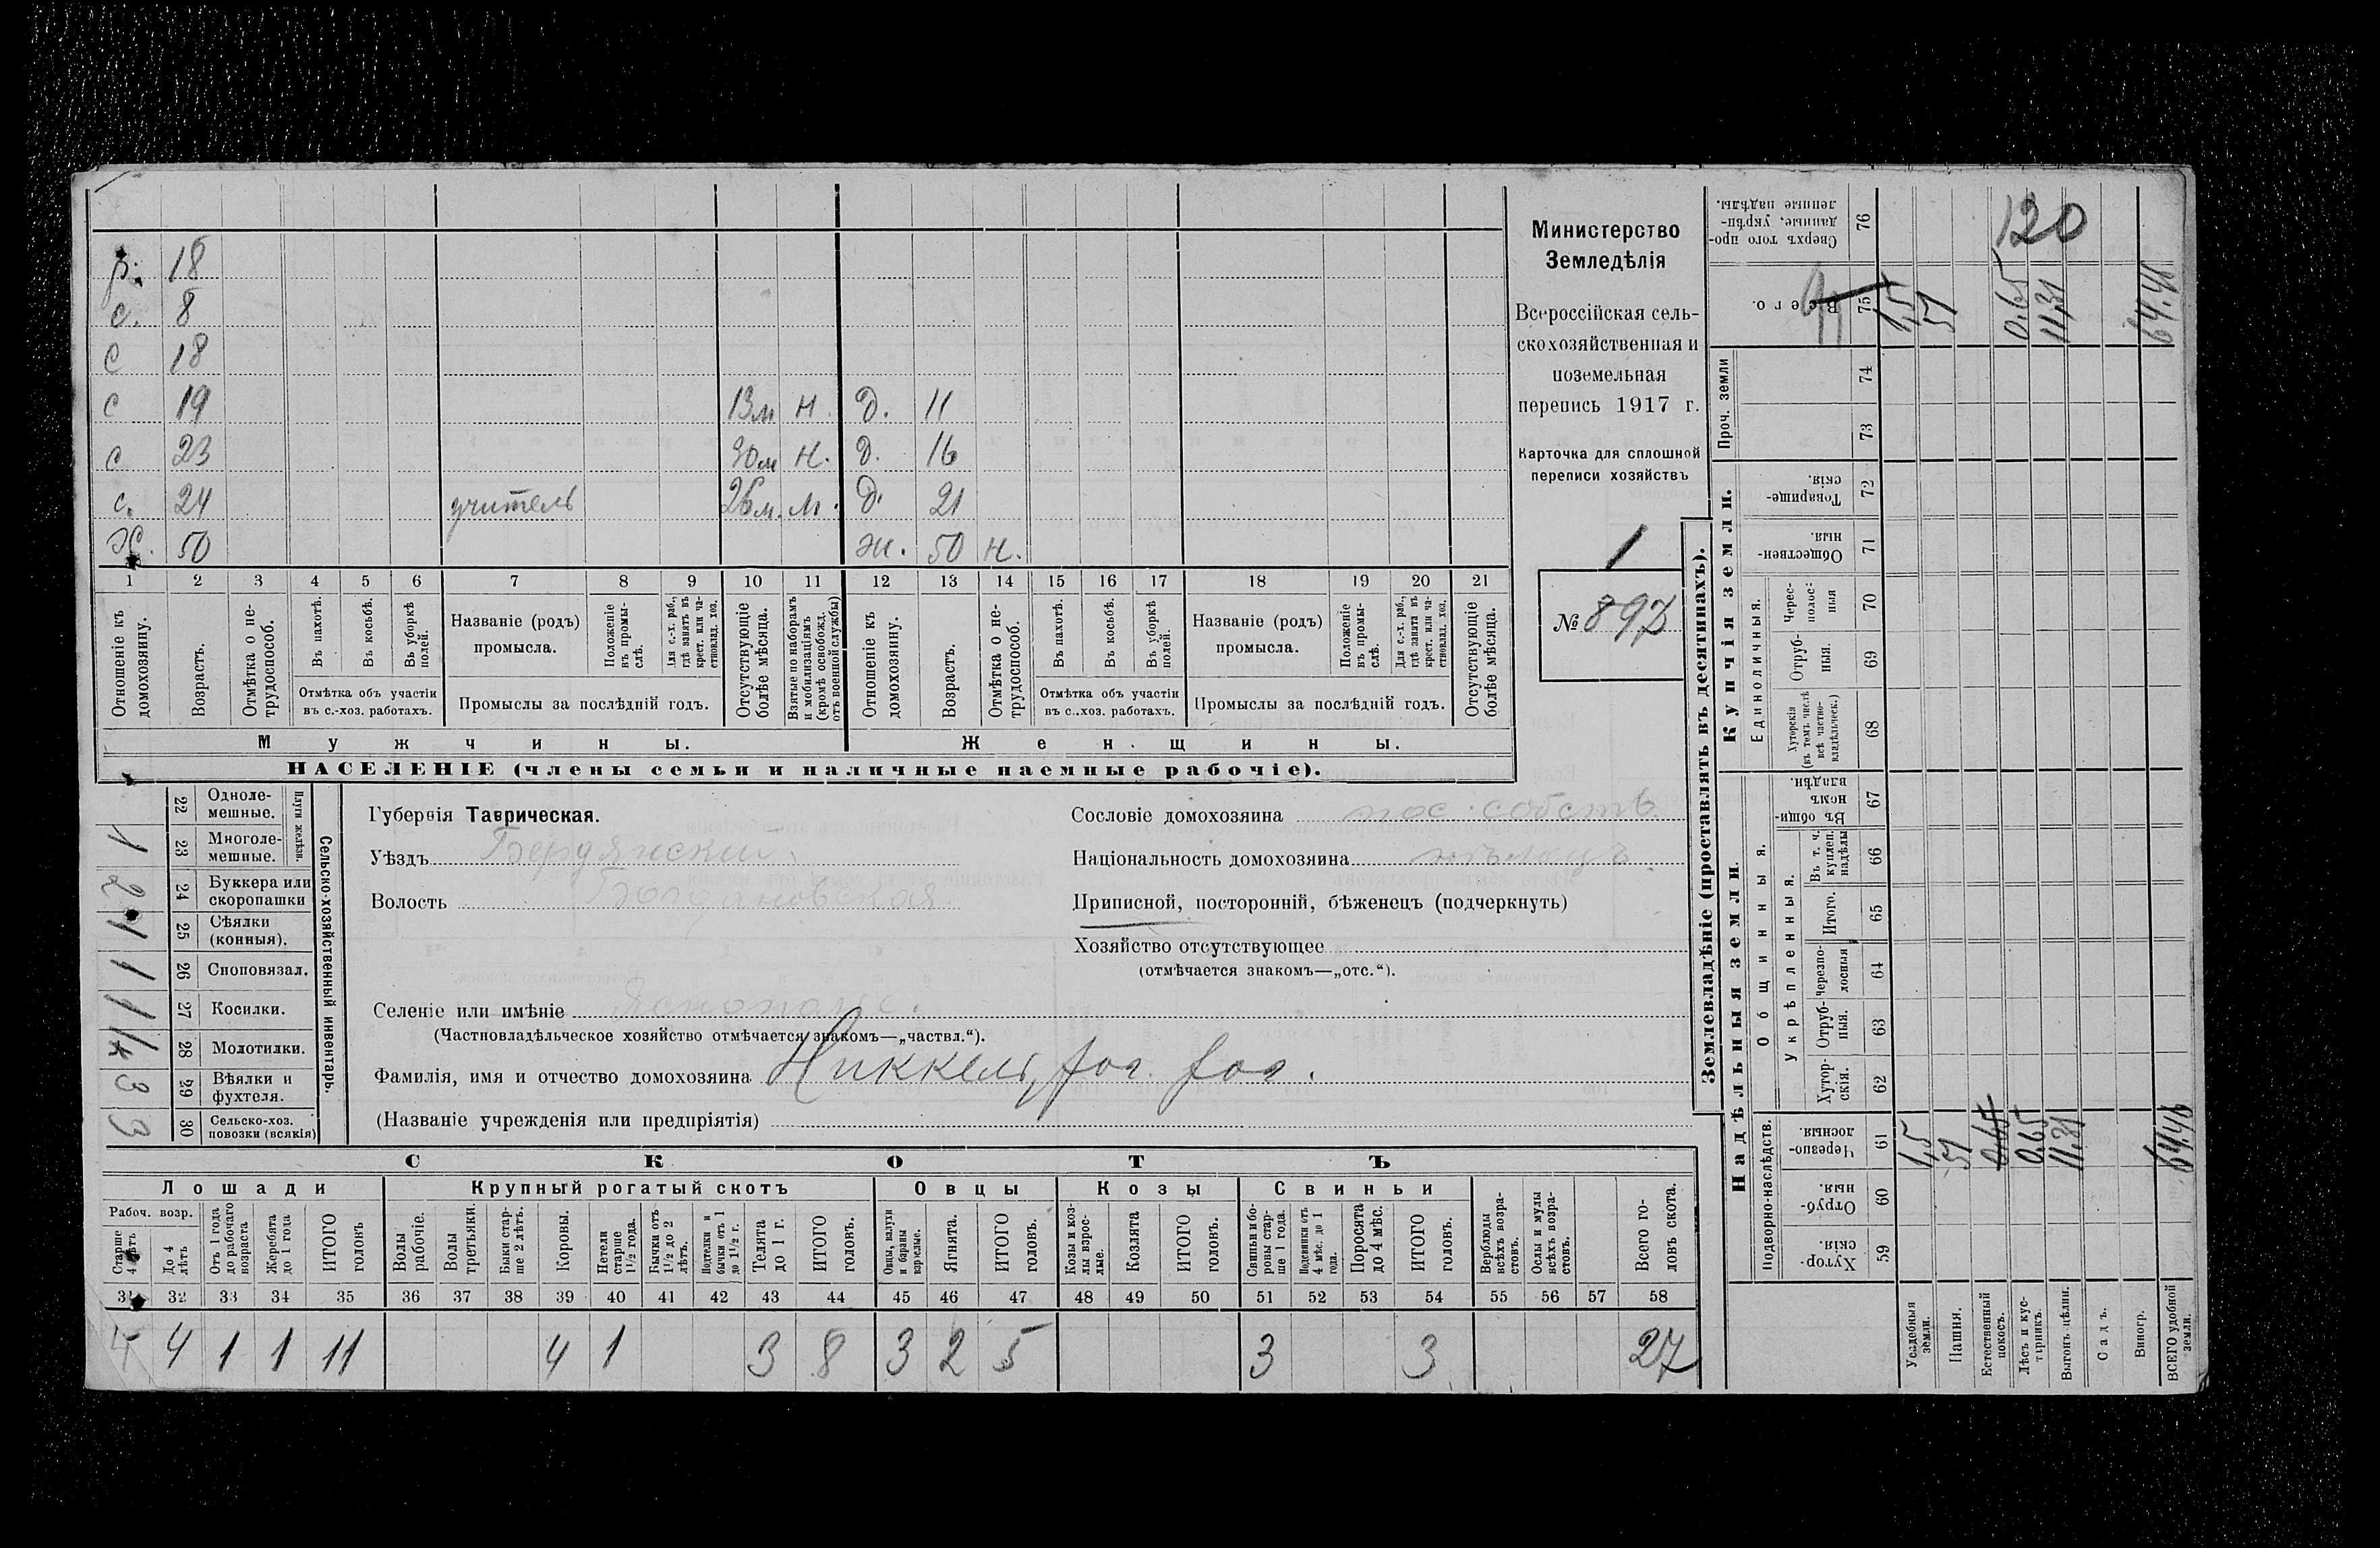 р. 18
с. 8
с 18
с 19 13м н. д. 11
с 23 30м н. д. 16
с. 24 учитель 26м. м. д. 21
Ж. 50 ж. 50 н.
1 2 3 4 5 6 7 8 9 10 11 12 13 14 15 16 17 18 19 20 21
Отношеніе къ домохозяину.
Возрастъ.
Отмѣтка о не-трудоспособ.
Въ пахотѣ.
Въ косьбѣ.
Въ уборкѣ полей.
Отмѣтка объ участіи въ с.-хоз. работахъ.
Названіе (родъ) промысла.
Положеніе въ промы-слѣ.
Для с.-х. раб., гдѣ занятъ въ крест. или ча-стновлад. хоз.
Промыслы за послѣдній годъ.
Отсутствующіе болѣе мѣсяца.
Взятые по наборамъ и мобилизаціямъ (кромѣ освобожд. отъ военной службы)
Отношеніе къ домохозяину.
Возрастъ.
Отмѣтка о не-трудоспособ.
Въ пахотѣ.
Въ косьбѣ.
Въ уборкѣ полей.
Отмѣтка объ участіи въ с..хоз. работахъ.
Названіе (родъ) промысла.
Положеніе въ промы-слѣ.
Для с.-х. раб., гдѣ занята въ крест. или ча-стновлад. хоз.
Промыслы за послѣдній годъ.
Отсутствующіе болѣе мѣсяца.
Мужчины.
Женщины.
НАСЕЛЕНІЕ (члены семьи и наличные наемные рабочіе).
Министерство
Земледѣлія
Всероссійская сель-
скохозяйственная и
поземельная
перепись 1917 г.
Карточка для сплошной
переписи хозяйствъ
1
№ 897
Сельско-хозяйственный инвентарь.
Плуги желѣзн.
22 Одноле-мешные.
23 Многоле-мешные. 1
24 Буккера или скоропашки 2
25 Сѣялки (конныя). 1
26 Сноповязал. 1
27 Косилки. 1
28 Молотилки.
29 Вѣялки и фухтеля. 3
30 Сельско-хоз. повозки (всякія) 3
Губернія Таврическая.
Уѣздъ Бердянский
Волость
Селеніе или имѣніе
(Частновладѣльческое хозяйство отмѣчается знакомъ—„частвл.“).
Фамилія, имя и отчество домохозяина Никкель,
(Названіе учрежденія или предпріятія)
Сословіе домохозяина пос. собств.
Національность домохозяина нѣмецъ
Приписной, посторонній, бѣженецъ (подчеркнуть)
Хозяйство отсутствующее
(отмѣчается знакомъ—„отс.“).
СКОТЪ
Лошади
Рабоч. возр.
Старше 4 лѣтъ
До 4 лѣтъ
Отъ 1 года до рабочаго возраста
Жеребята до 1 года
ИТОГО головъ
Крупный рогатый скотъ
Волы рабочіе.
Волы третьяки.
Быки стар-ше 2 лѣтъ.
Коровы.
Нетели старше 1½ года.
Бычки отъ 1½ до 2 лѣтъ.
Подтелки и бычки отъ 1 до 1½ г.
Телята до 1 г.
ИТОГО головъ.
Овцы
Овцы, валухи и бараны взрослые.
Ягнята.
ИТОГО головъ.
Козы
Козы и коз-лы взрос-лые.
Козлята
ИТОГО головъ.
Свиньи
Свиньи и бо-ровы стар-ше 1 года.
Подсвинки отъ 4 мѣс. до 1 года.
Поросята до 4 мѣс.
ИТОГО головъ.
Верблюды всѣхъ возра-стовъ.
Ослы и мулы всѣхъ возра-стовъ.
Всего го-ловъ скота.
31 32 33 34 35 36 37 38 39 40 41 42 43 44 45 46 47 48 49 50 51 52 53 54 55 56 57 58
4 1 1 11 4 1 3 8 3 2 5 3 3 27
Землевладѣніе (проставлять въ десятинахъ).
Сверхъ того про-данные, укрѣп-ленные надѣлы. 76
120
Всего. 75
1,5 51 0,65 11,31 64.46
Проч. земли
74
73
Купчія земли.
Товарище-скія. 72
Обществен-ныя. 71
Единоличныя.
Черес-полос-ныя 70
Отруб-ныя. 69
Хуторскія (въ томъ числѣ всѣ частно-владѣльческ.) 68
Надѣльныя земли.
Общинныя.
Въ общин-номъ владѣн. 67
Укрѣпленныя.
Въ т. ч. куплен. надѣлы 66
Итого. 65
Черезпо-лосныя 64
Отруб-ныя. 63
Хутор-скія. 62
Подворно-наслѣдств.
Черезпо-лосныя. 61
1,5 51 0,65 0,65 11,31 64.46
Отруб-ныя. 60
Хутор-скія. 59
Усадебныя земли.
Пашня.
Естественный покосъ.
Лѣсъ и кус-тарникъ.
Выгонъ цѣлин.
Садъ.
Виногр.
ВСЕГО удобной земли.